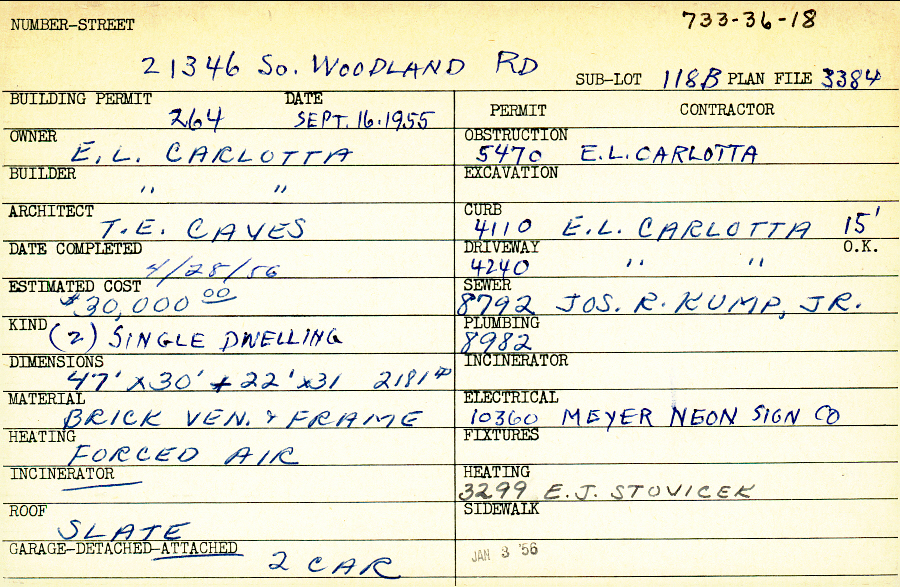 NUMBER-STREET 733-36-18
21346 SO. WOODLAND RD SUB-LOT 118B PLAN FILE 3384
BUILDING PERMIT DATE PERMIT CONTRACTOR
264 SEPT. 16.1955
OWNER OBSTRUCTION
E. L. CARLOTTA 5470 E.L. CARLOTTA
BUILDER EXCAVATION
" "
ARCHITECT CURB
T.E. CAVES 4110 E.L. CARLOTTA 15'
DATE COMPLETED DRIVEWAY O.K.
4/28/56 4240 " "
ESTIMATED COST SEWER
$30,000 00 8792 JOS. R. KUMP, JR.
KIND (2) SINGLE DWELLING PLUMBING
8982
DIMENSIONS INCINERATOR
47' X 30' + 22' X 31 2181
MATERIAL ELECTRICAL
BRICK VEN. & FRAME 10360 MEYER NEON SIGN CO
HEATING FIXTURES
FORCED AIR
INCINERATOR HEATING
3299 E.J. STOVICEK
ROOF SIDEWALK
SLATE
GARAGE-DETACHED-ATTACHED JAN 3 '56
2 CAR